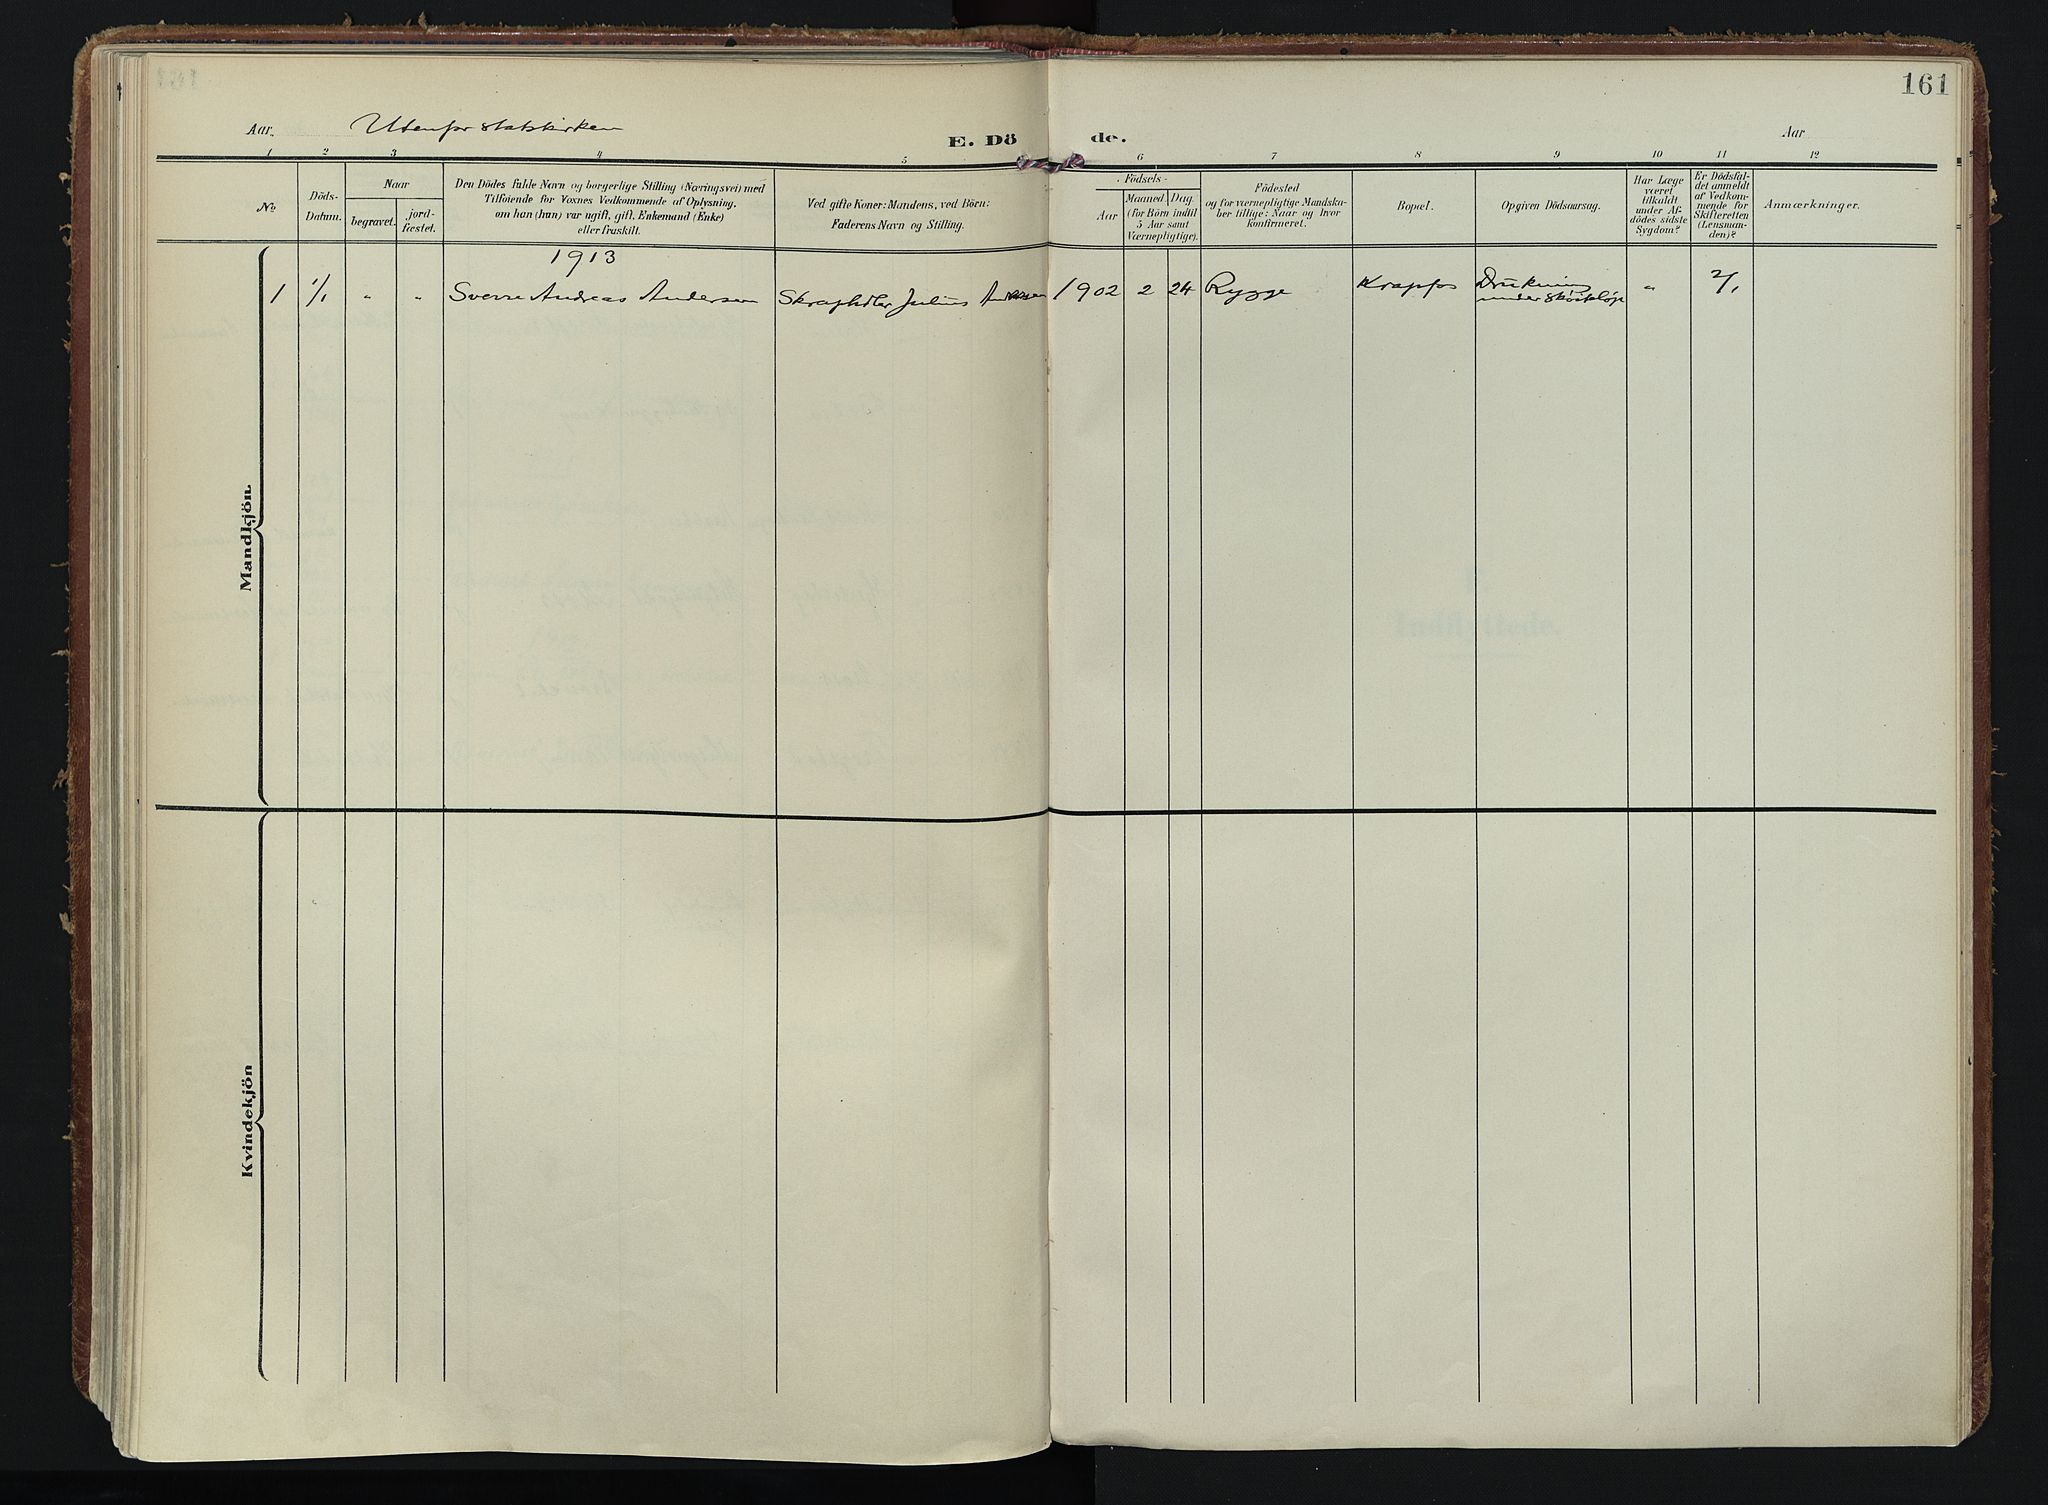 161
Aar. Utenfor statskirken
E. Dö de.
Aar
1 2 3 4 5 6 7 8 9 10 11 12
No
Döds-
Datum.
Naar
begravet.
jord-
fæstet.
Den Dödes fulde Navn og borgerlige Stilling (Næringsvei) med
Tilföiende for Voxnes Vedkommende af Oplysning,
om han (hun) var ugift, gift, Enkemand (Enke)
eller fraskilt.
Ved gifte Koner: Mandens, ved Börn:
Faderens Navn og Stilling.
Födsels-
Aar
Maaned. Dag.
(for Börn indtil
5 Aar samt
Værnepligtige).
Födested
og for værnepligtige Mandska-
ber tillige: Naar og hvor
konfirmeret.
Bopæl.
Opgiven Dödsaarsag.
Har Læge
været
tilkaldt
under Af-
dödes sidste
Sygdom?
Er Dödsfal-
det anmeldt
af Vedkom-
mende for
Skifteretten
(Lensman-
den)?
Anmærkninger.
Mandkjön.
1913
1 1/1 " " Sverre Andreas Andersen Skraphdler Julius Andersen 1902 2 24 Rygge Krapfos Drukning " 2/1
under sköiteløp
Kvindekjön